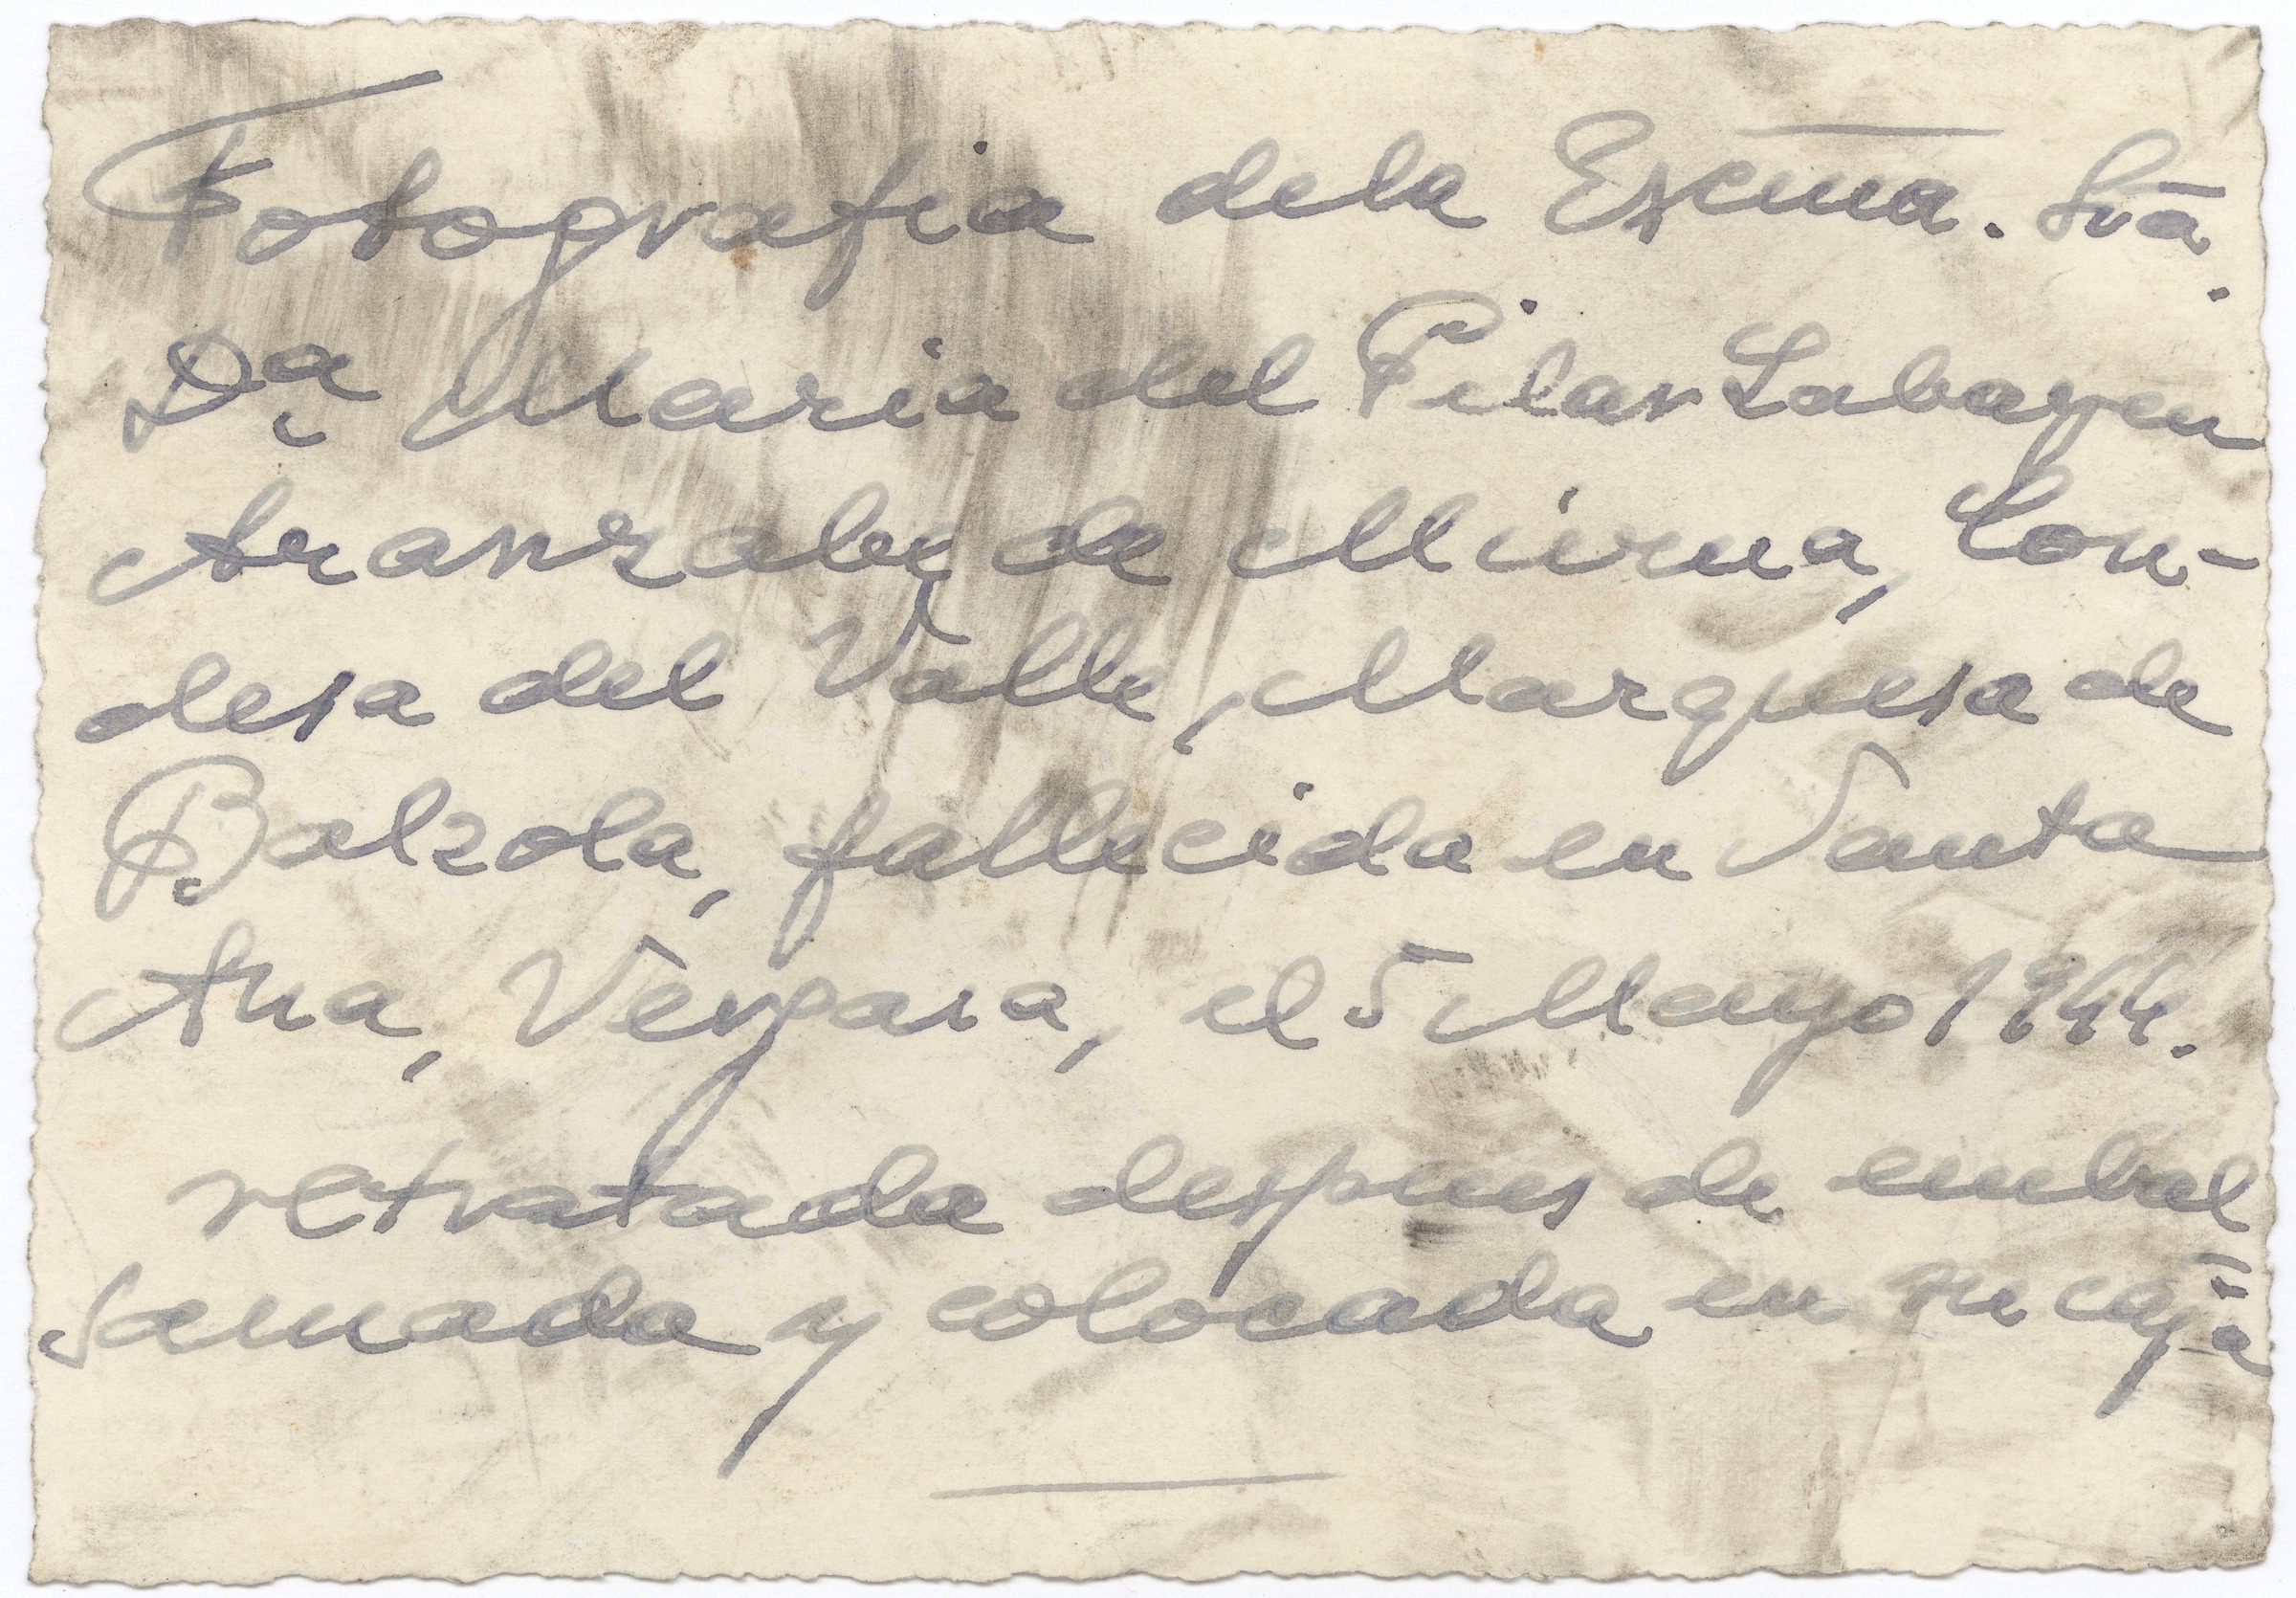 Fotografia dela Excma. Srā.
Dª Maria del Pilar Labayen
Aranzabe de Murua, Con-
desa del Valle, Marquesa de
Balzola, fallecida en Santa
Ana, Vergara, el 5 Mayo 1944.
retratada despues de embal
samada y colocada en su caja